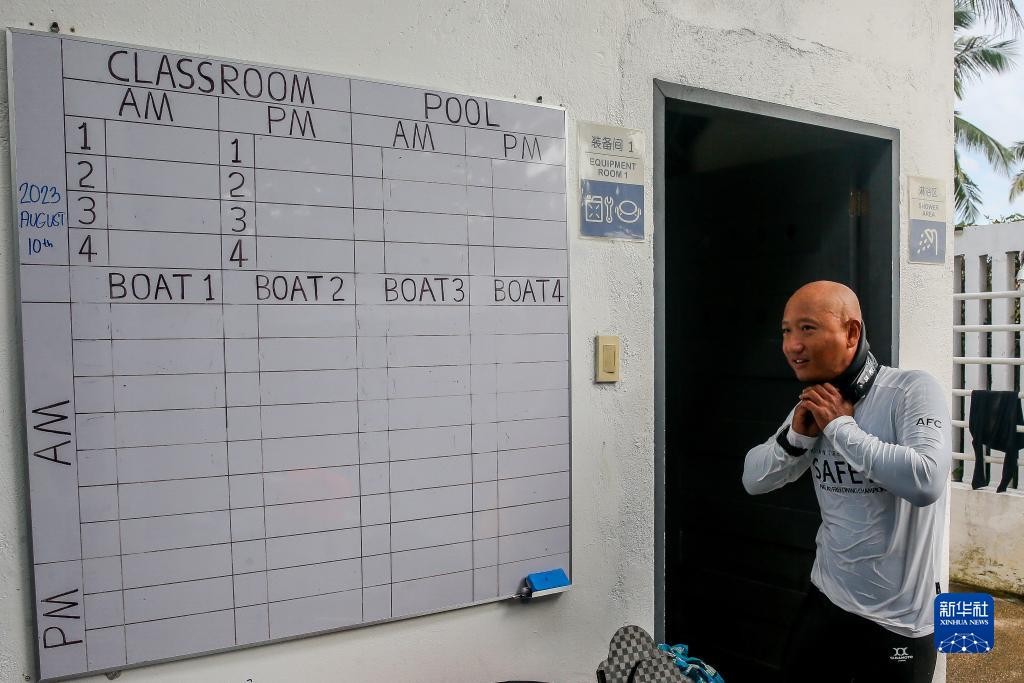 CLASSROOM
POOL
AM
PM
AM
PM
1
1
2
2
3
3
4
4
2023
AUGUST
10th
BOAT 1
BOAT 2
BOAT 3
BOAT 4
AM
PM
装备间 1
EQUIPMENT
ROOM 1
淋浴区
SHOWER
AREA
AFC
SAFE
新华社
XINHUA NEWS